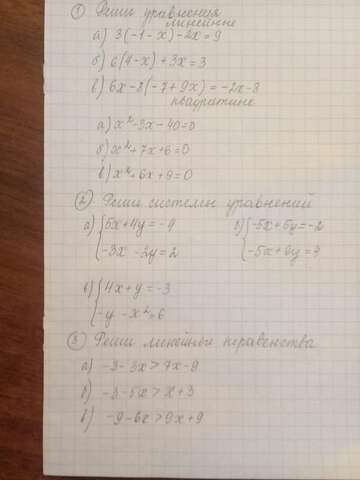 ① Реши уравнения
линейные
а) 3(-1-x)-2x=9
б) 6(4-x)+3x=3
в) 6x-2(-7+9x)=-2x-8
квадратные
а) x²-3x-40=0
б) x²+7x+6=0
в) x²+6x+9=0
② Реши системы уравнений
а) {5x+4y=-4 б) {-5x+5y=-2
{-3x-2y=2 {-5x+9y=7
в) {4x+y=-3
{-y-x²=6
③ Реши линейные неравенства
а) -3-3x>7x-9
б) -3-5x>x+3
в) -9-6x>9x+9